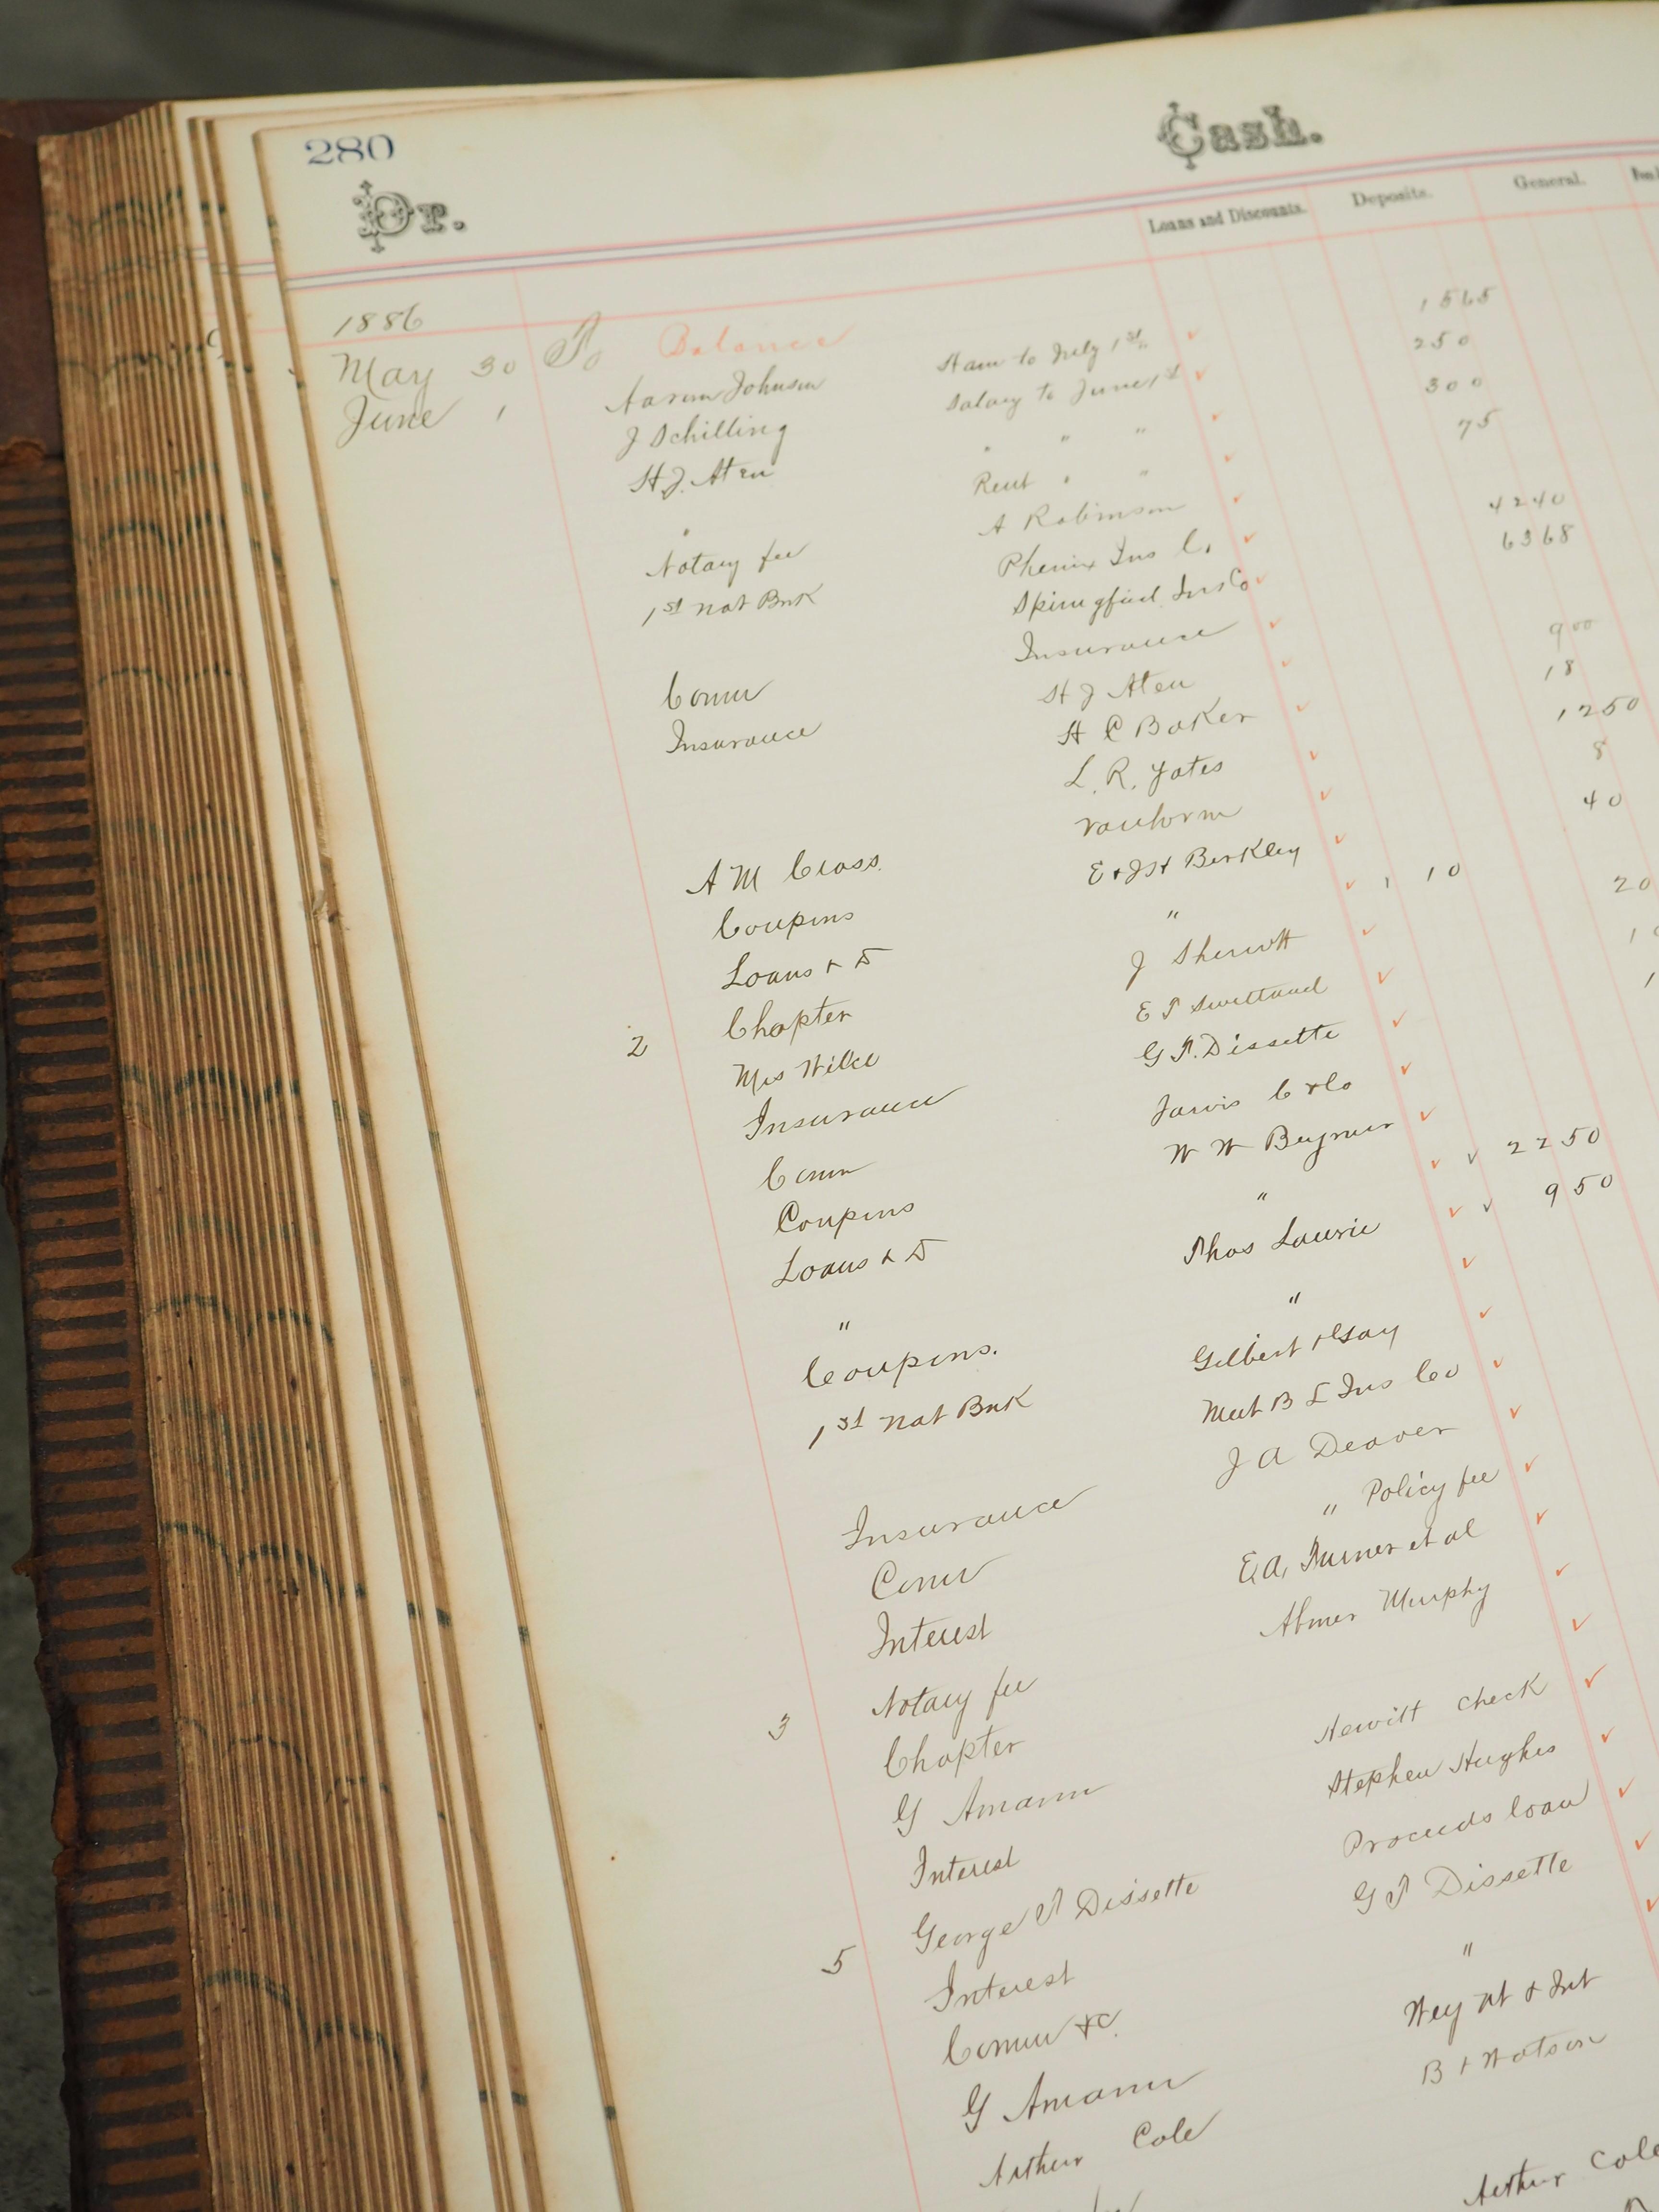 280
Cash.
Dr.
Loans and Discounts. Deposits. General.
1886
May 30 To Balance
June 1 Aaron Johnson Ham to July 1st 1565
J Schilling Salary to June 1st 250
H J. Aten " " " 300
" Rent " " 75
Notary fee A Robinson
1st Nat Bnk Phenix Ins C. 4240
Springfield Ins Co 6368
Comm Insurance
Insurance H J Aten 900
H C Baker 18
L. R. Yates 1250
8
A M Cross. E & JH Berkley 40
Coupons "
Loans & D J Sherwtt 10
2 Chapter E T Swettand 20
Mrs Wilke G T. Dissette
Insurance Jarvis C & Co
Comm W W Beymer
Coupons "
Loans & D Thos Lawrie 2250
" " 950
Coupons. Gilbert & Gay
1st Nat Bnk Mut B L Ins Co
J A Deaver
Insurance " Policy fee
Comm E, A, Turner et al
Interest Abner Murphy
Notary fee
3 Chapter Hewitt check
G Amann Stephen Hughes
Interest Proceeds loan
George T Dissette G T Dissette
5 Interest "
Comm &c.
G Amann B F Watson
Arthur Cole
Arthur Cole